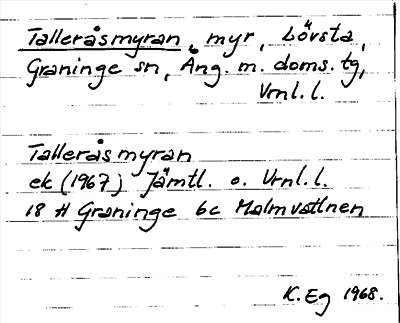 Talleråsmyran, myr, Lövsta,
Graninge sn, Ång. m. doms. tg,
Vrnl. l.
Talleråsmyran
ek (1967) Jämtl. o. Vrnl. l.
18 H Graninge 6c Malmvattnen
K. Eg 1968.